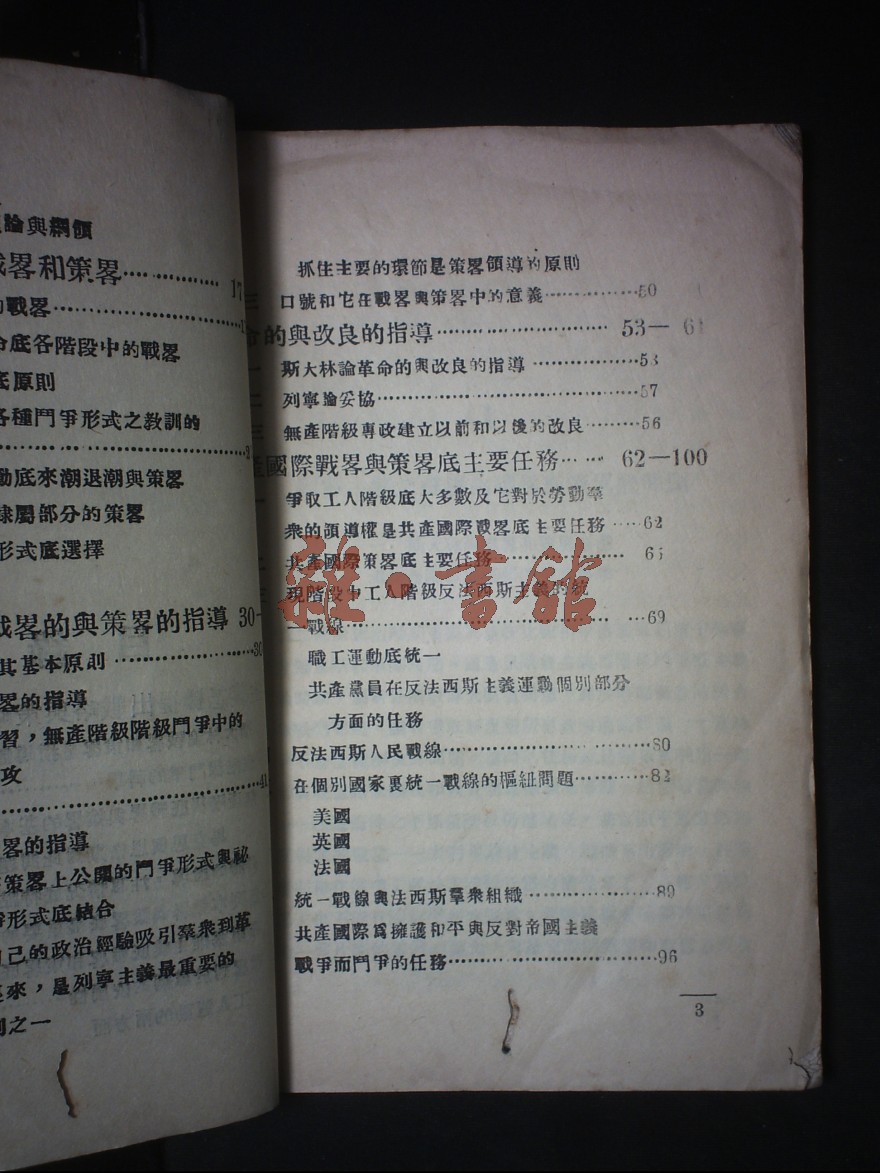 論與綱領
戰畧和策畧 17
的戰畧
命底各階段中的戰畧
底原則
各種鬥爭形式之教訓的
動底來潮退潮與策畧
隸屬部分的策畧
形式底選擇
戰畧的與策畧的指導 30
其基本原則 30
畧的指導
習，無產階級階級鬥爭中的
攻
41
畧的指導
策畧上公開的鬥爭形式與祕
爭形式底結合
己的政治經驗吸引羣衆到革
來，是列寧主義最重要的
則之一
抓住主要的環節是策畧領導的原則
三 口號和它在戰畧與策畧中的意義 50
的與改良的指導 53— 61
斯大林論革命的與改良的指導 53
二 列寧論妥協 57
三 無產階級專政建立以前和以後的改良 56
國際戰畧與策畧底主要任務 62—100
爭取工人階級底大多數及它對於勞動羣
衆的領導權是共產國際戰畧底主要任務 62
共產國際策畧底主要任務 65
現階段中工人階級反法西斯主義的統
一戰線 69
職工運動底統一
共產黨員在反法西斯主義運動個別部分
方面的任務
反法西斯人民戰線 80
在個別國家裏統一戰線的樞紐問題 82
美國
英國
法國
統一戰線與法西斯羣衆組織 89
共產國際爲擁護和平與反對帝國主義
戰爭而鬥爭的任務 96
3
雜·書館